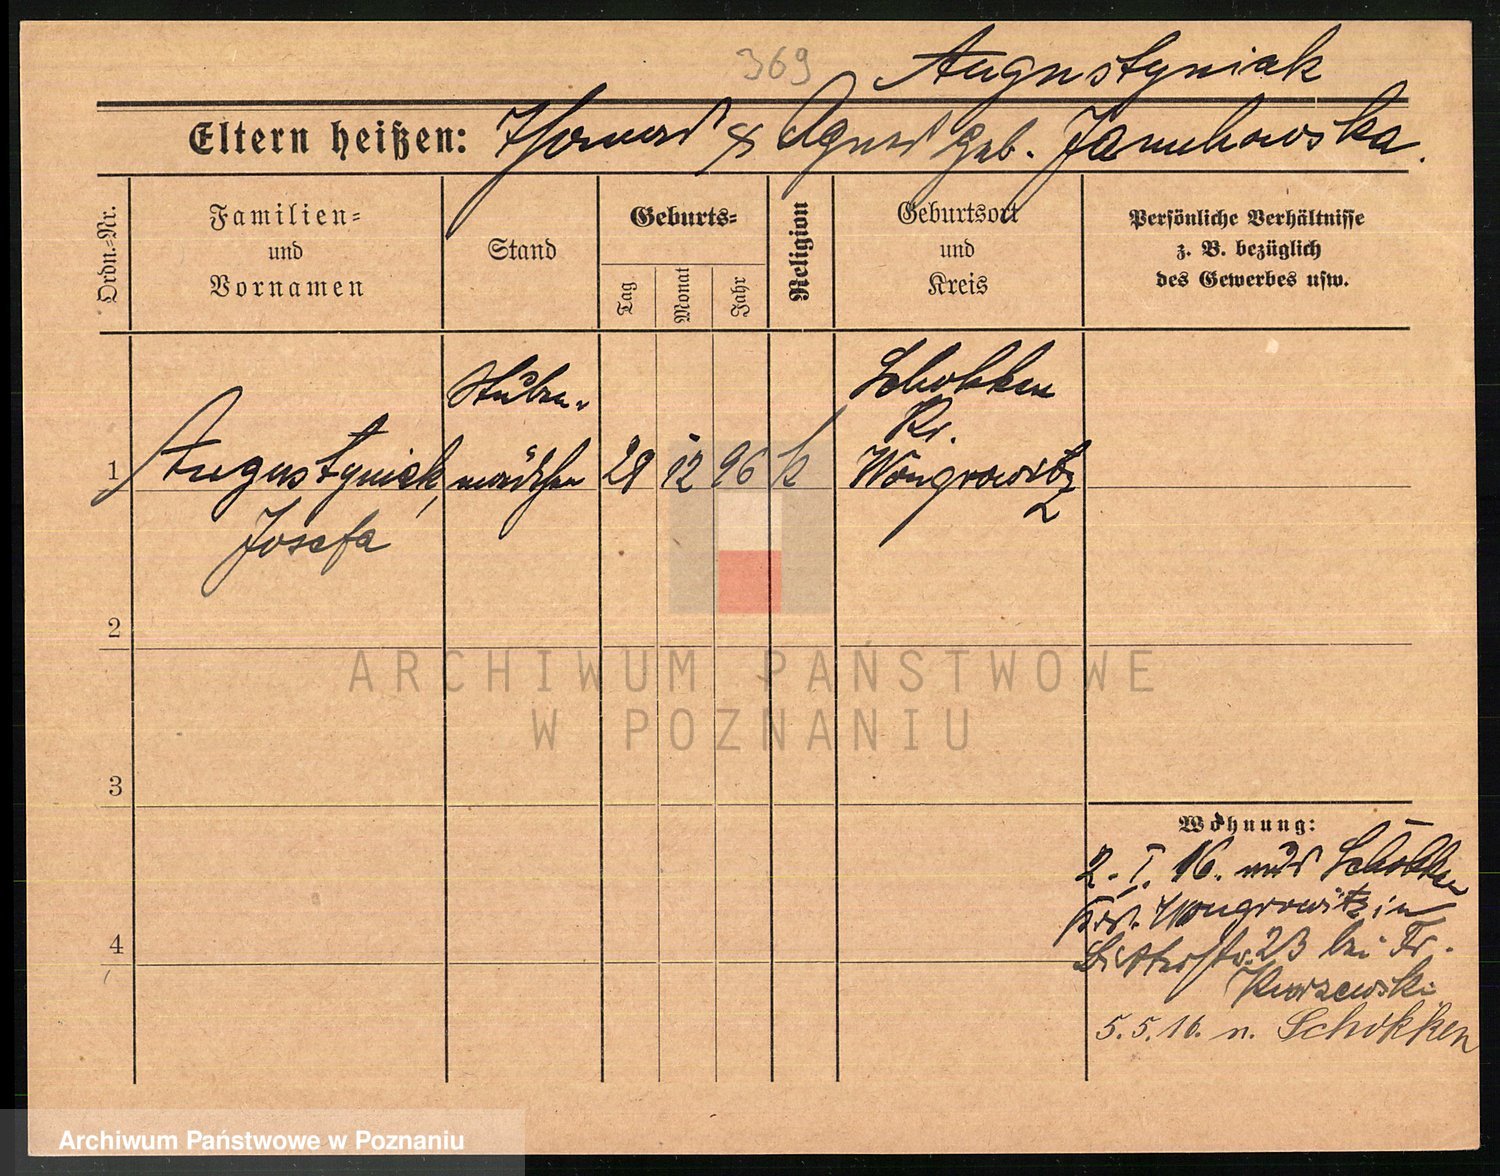 369
Augustyniak
Eltern heißen: Thomas & Agnes geb. Januchowska.
Ordn.=Nr.
Familien=
und
Vornamen
Stand
Geburts=
Tag
Monat
Jahr
Religion
Geburtsort
und
Kreis
Persönliche Verhältnisse
z. B. bezüglich
des Gewerbes usw.
1
Augustyniak,
Josefa
Stuben-
mädchen
12
96
k
Schokken
Kr.
Wongrowitz
2
3
4
Wohnung:
2. I. 16. aus Schokken
Krs. Wongrowitz in
23 bei Fr.
5. 5. 16. n. Schokken
ARCHIWUM PAŃSTWOWE
W POZNANIU
Archiwum Państwowe w Poznaniu